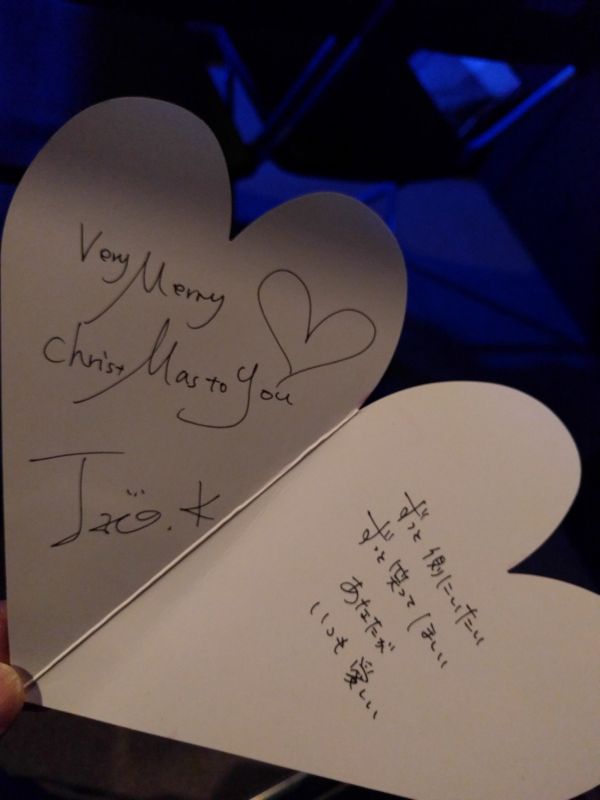 Very Merry
ChristMas to You
ずっと側にいたい
ずっと笑ってほしい
あなたが
いつも愛しい